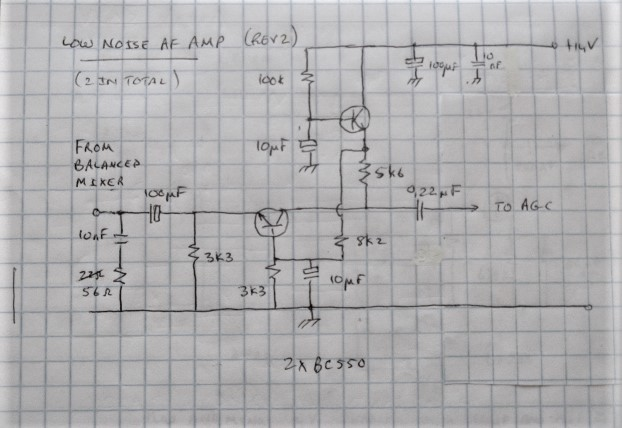 LOW NOISE AF AMP (REV2)
(2 IN TOTAL)
+14V
100K
100µF
10
nF
10µF
FROM
BALANCED
MIXER
5K6
100µF
0,22µF
TO AGC
10nF
3K3
8K2
22Ω
56Ω
3K3
10µF
2X BC550